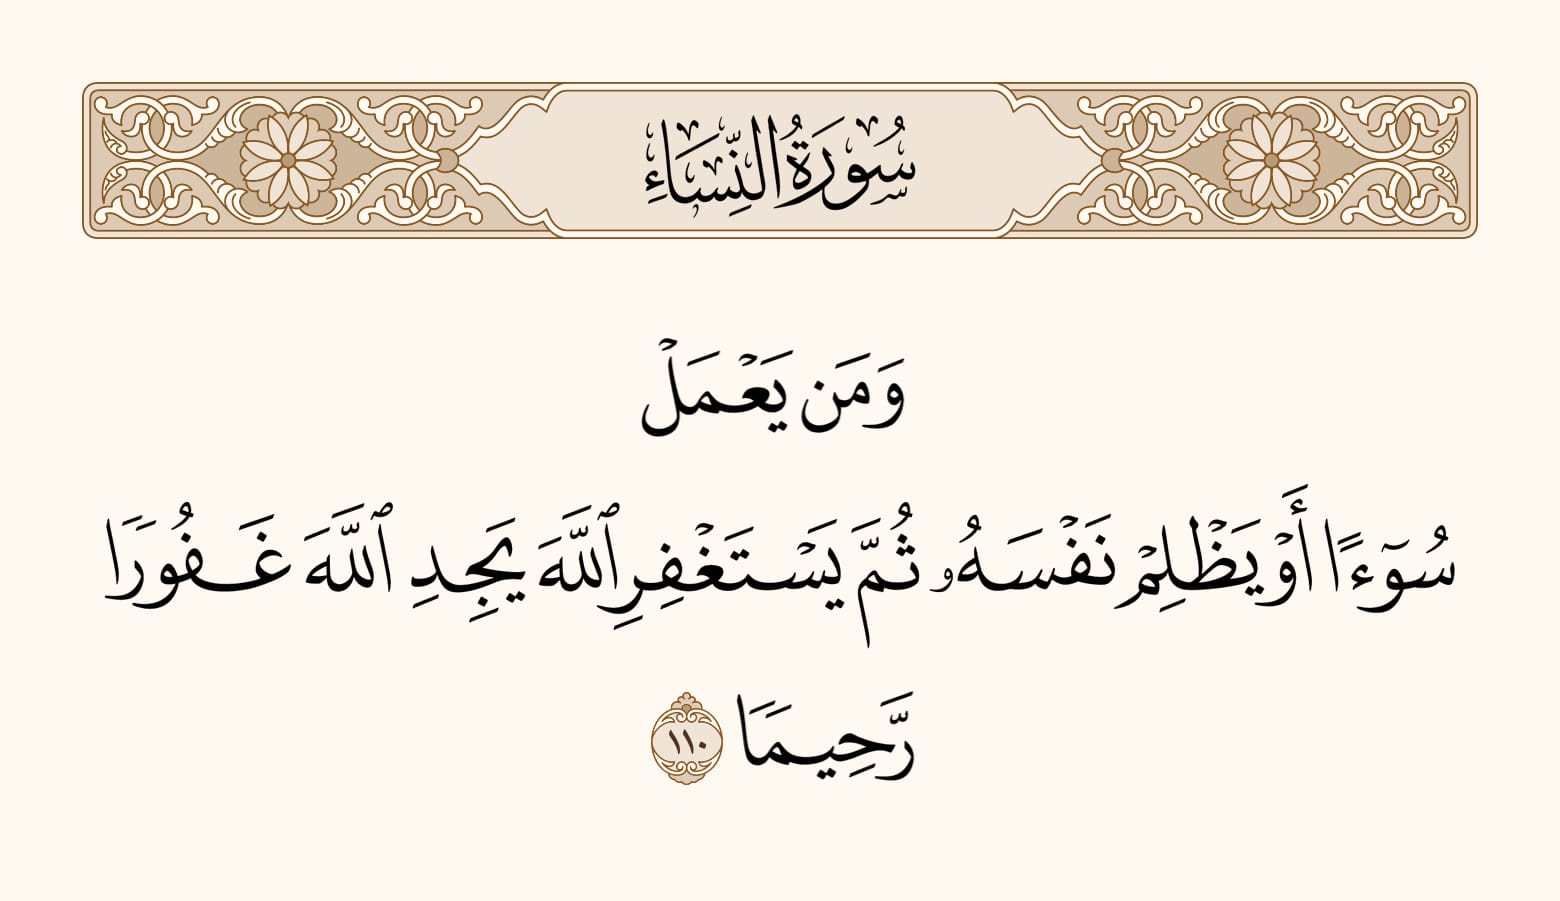 سُورَةُ النِّسَاءِ
وَمَن يَعۡمَلۡ
سُوٓءًا أَوۡ يَظۡلِمۡ نَفۡسَهُۥ ثُمَّ يَسۡتَغۡفِرِ ٱللَّهَ يَجِدِ ٱللَّهَ غَفُورٗا
رَّحِيمٗا ١١٠